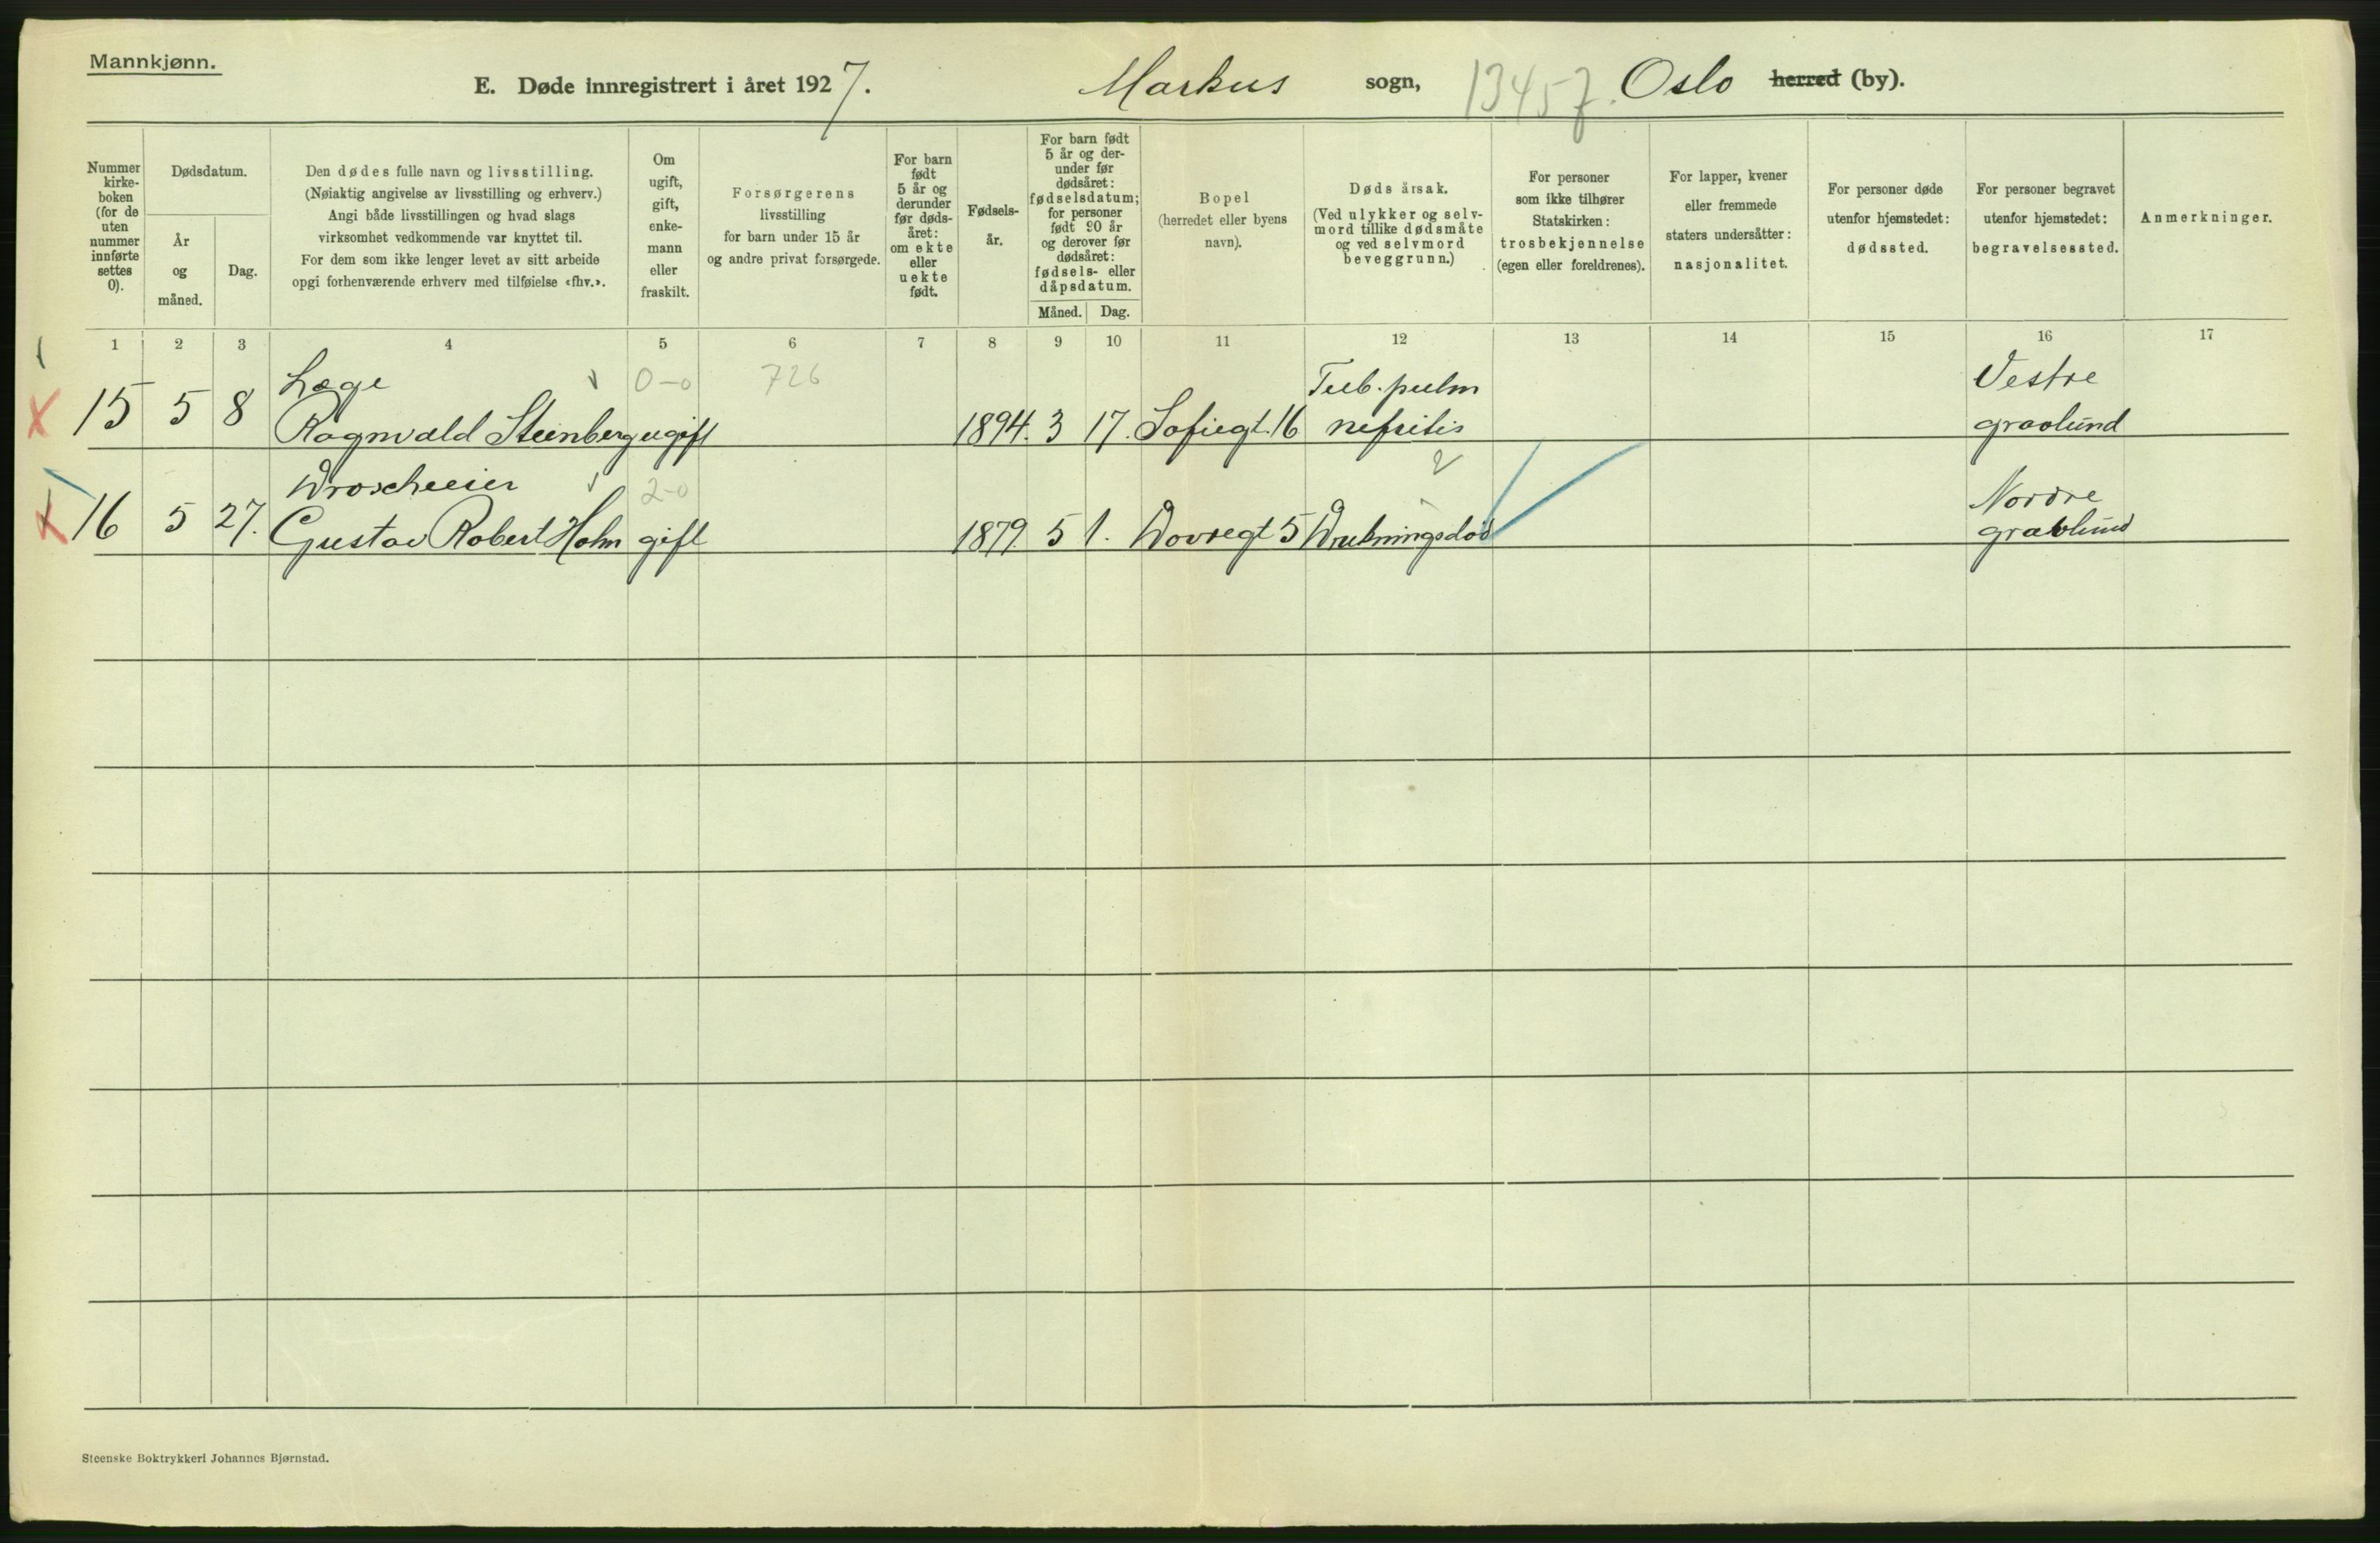 Mannkjønn.
E. Døde innregistrert i året 1927. Markus sogn, 13457. Oslo herred (by).
Nummer kirke-boken (for de uten nummer innførte settes 0).
Dødsdatum.
År og måned.
Dag.
Den dødes fulle navn og livsstilling.
(Nøiaktig angivelse av livsstilling og erhverv.)
Angi både livsstillingen og hvad slags
virksomhet vedkommende var knyttet til.
For dem som ikke lenger levet av sitt arbeide
opgi forhenværende erhverv med tilføielse «fhv.».
Om
ugift,
gift,
enke-
mann
eller
fraskilt.
Forsørgerens
livsstilling
for barn under 15 år
og andre privat forsørgede.
For barn
født
5 år og
derunder
før døds-
året:
om ekte
eller
uekte
født.
Fødsels-
år.
For barn født
5 år og der-
under før
dødsåret:
fødselsdatum;
for personer
født 90 år
og derover før
dødsåret:
fødsels- eller
dåpsdatum.
Måned. Dag.
Bopel
(herredet eller byens
navn).
Døds årsak.
(Ved ulykker og selv-
mord tillike dødsmåte
og ved selvmord
beveggrunn.)
For personer
som ikke tilhører
Statskirken:
trosbekjennelse
(egen eller foreldrenes).
For lapper, kvener
eller fremmede
staters undersåtter:
nasjonalitet.
For personer døde
utenfor hjemstedet:
dødssted.
For personer begravet
utenfor hjemstedet:
begravelsessted.
Anmerkninger.
1 2 3 4 5 6 7 8 9 10 11 12 13 14 15 16 17
Læge 0-0 726 Tub. pulm Vestre
15 5 8 Ragnvald Steinberg ugift 1894. 3 17. Sofiegt. 16 nefritis gravlund
Droscheeier 2-0 Nordre
16 5 27. Gustav Robert Holm gift 1879. 5 1. Dovregt 5 Drukningsdød gravlund
Steenske Boktrykkeri Johannes Bjørnstad.